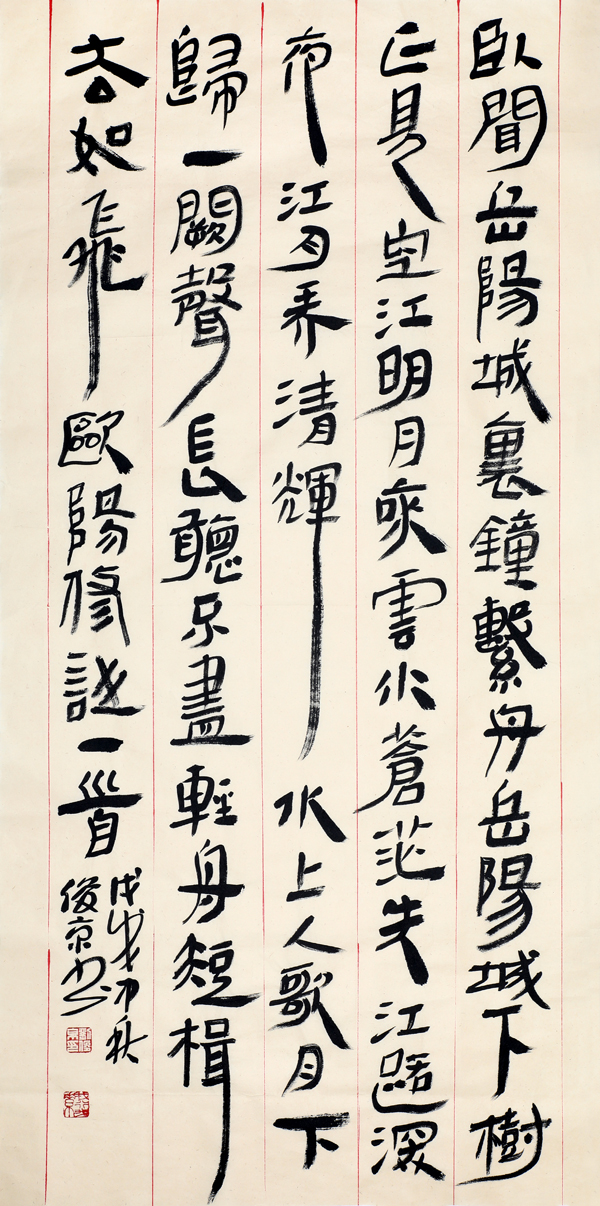 臥聞岳陽城裏鐘繫舟岳陽城下樹
正見空江明月來雲水蒼茫失江路深
夜江月弄清輝水上人歌月下
歸一闋聲長聽不盡輕舟短楫
去如飛 歐陽修詩一首
戊戌初秋
俊京書